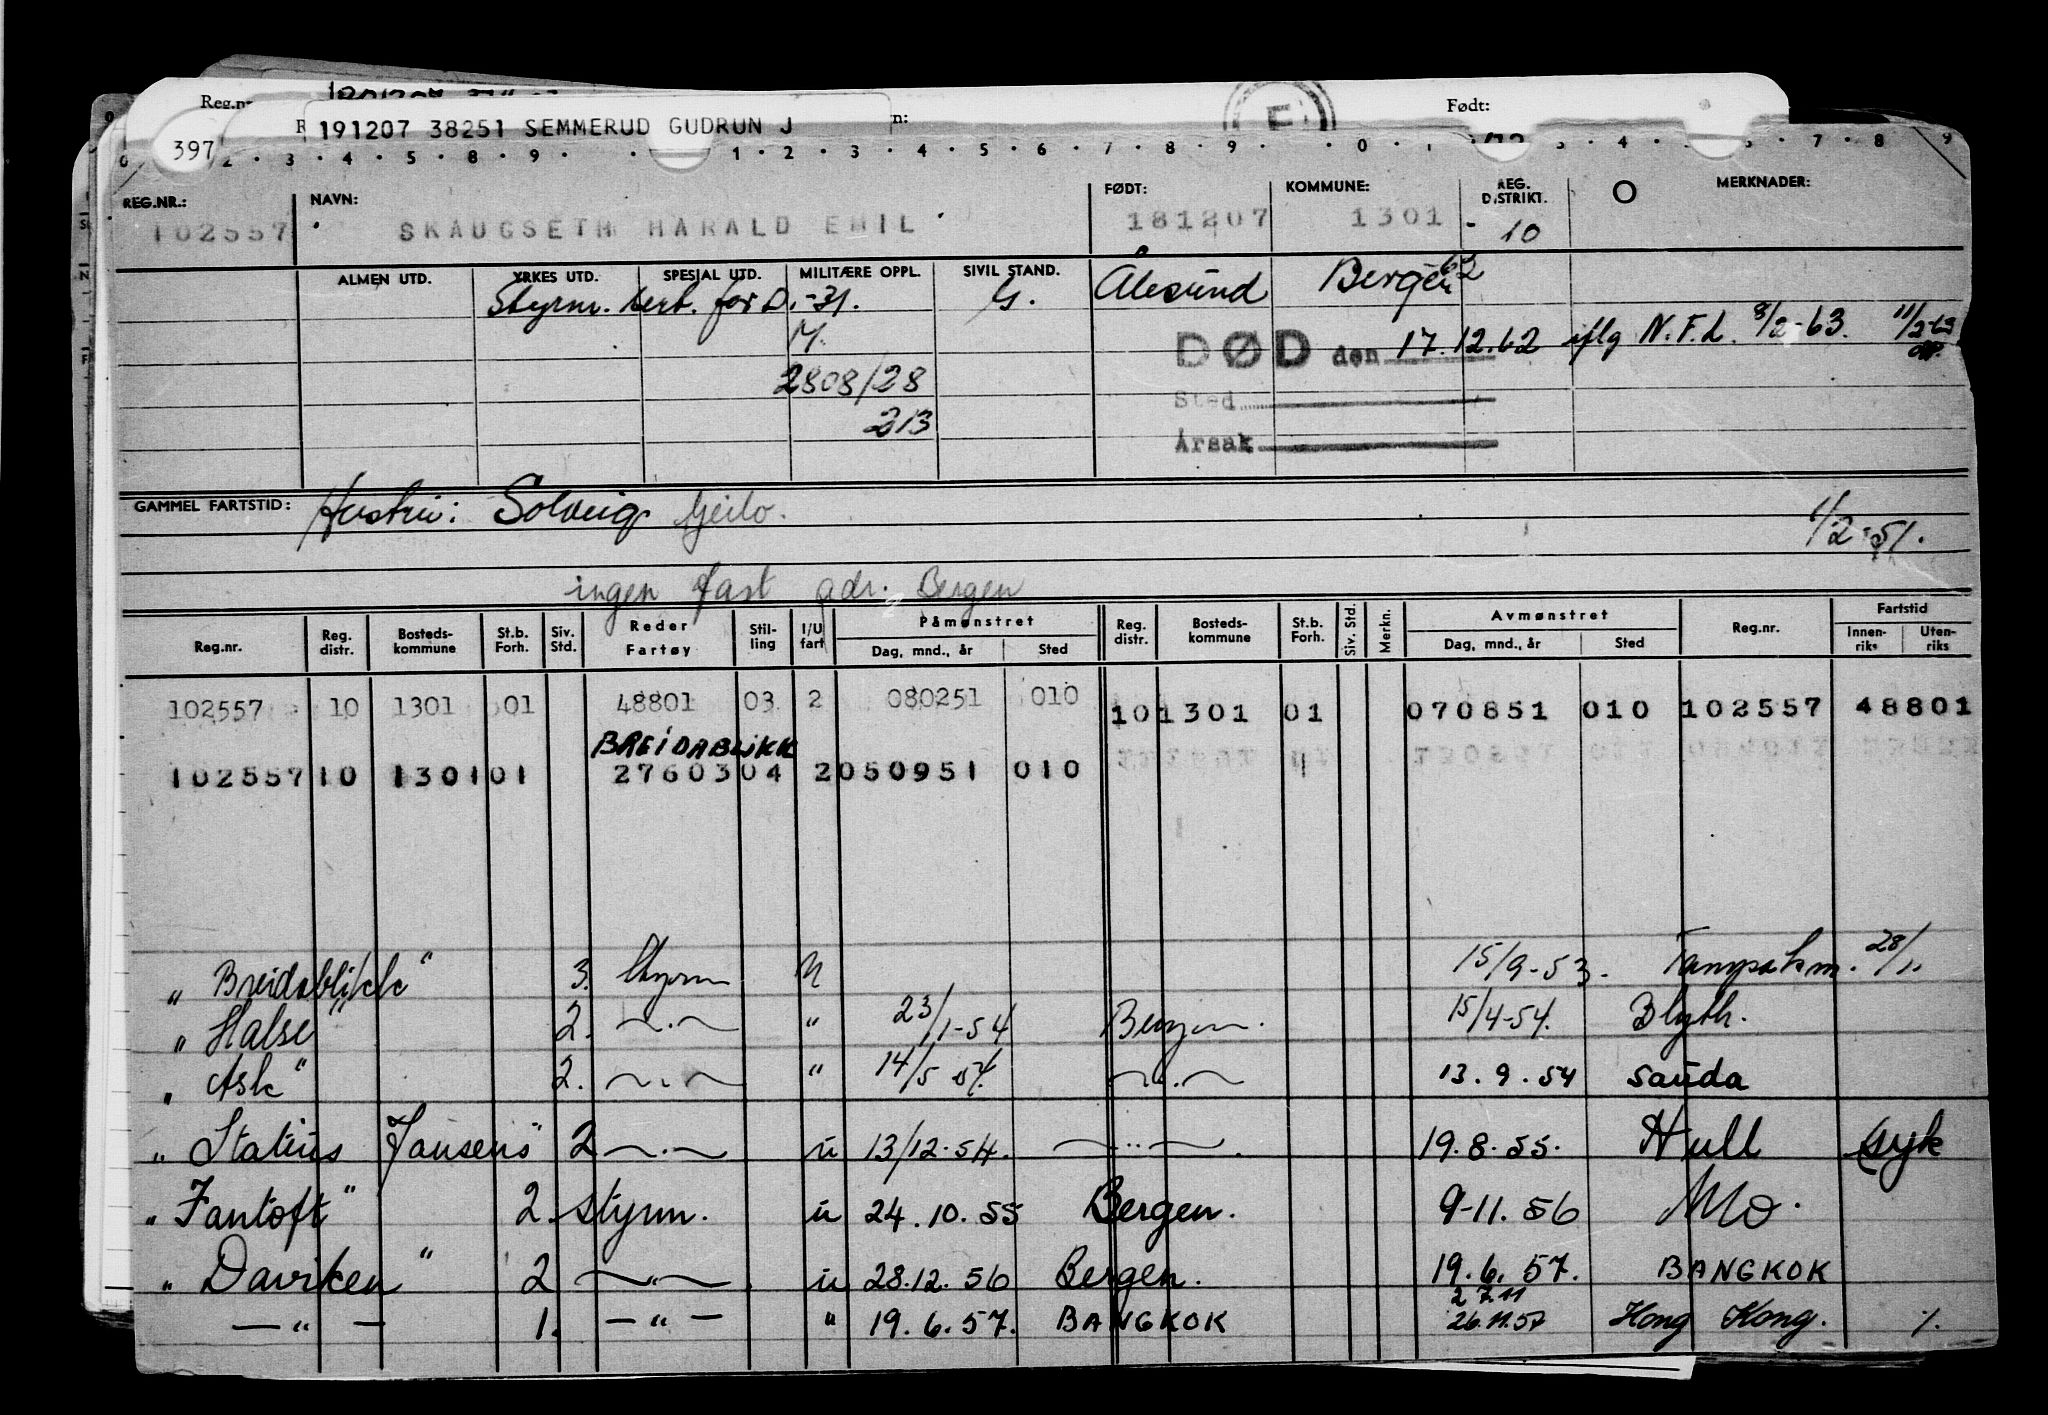 Reg.nr Født:
191207 38251 SEMMERUD GUDRUN J n:
397
2 · 3 · 4 · 5 · 8 · 9 · 1 · 2 · 3 · 4 · 5 · 6 · 7 · 8 · 9 · 0 · 4 · 7 · 8 9
REG.NR.: NAVN: FØDT: KOMMUNE: REG. DISTRIKT. O MERKNADER:
102557 SKAUGSETH HARALD EMIL 181207 1301 - 10
ALMEN UTD. YRKES UTD. SPESIAL UTD. MILITÆRE OPPL. SIVIL STAND. Ålesund Bergen 62
Styrm. sert. for D.-31. G.
M. DØD den 17.12.62 iflg N.F.L. 8/2-63. 11/2-63
2808/28 Sted
213 Årsak
GAMMEL FARTSTID: Hustru: Solveig Geilo. 1/2-51.
ingen fast adr. Bergen
Reg.nr. Reg. distr. Bosteds-kommune St.b. Forh. Siv. Std. Reder Fartøy Stil-ling I/U fart Påmønstret Dag, mnd., år Sted Reg. distr. Bosteds-kommune St.b. Forh. Siv. Std. Merkn. Avmønstret Dag, mnd., år Sted Reg.nr. Fartstid Innen-riks Uten-riks
102557 10 1301 01 48801 03 2 080251 010 10 1301 01 070851 010 102557 48801
BREIDABLIKK
102557 10 1301 01 27603 04 2 050951 010
„ Breidablikk" 3. Styrm U 15/9-53. 28/1.
„ Halse" 2. —·— " 23/1-54 Bergen. 15/4-54. Blyth.
„ Ask" 2. —·— " 14/5 54. —·— 13.9.54 Sauda
„ Statius Jansens" 2 —·— u 13/12-54. —··— 19.8.55. Hull syk
„ Fantoft" 2. styrm. u 24.10.55 Bergen. 9-11.56 Mo.
„ Daviken" 2 —"— u 28.12.56 Bergen. 19.6.57. BANGKOK
— " — 1. — " — " 19.6.57. BANGKOK 27.11 26.11.57 Hong Kong. %